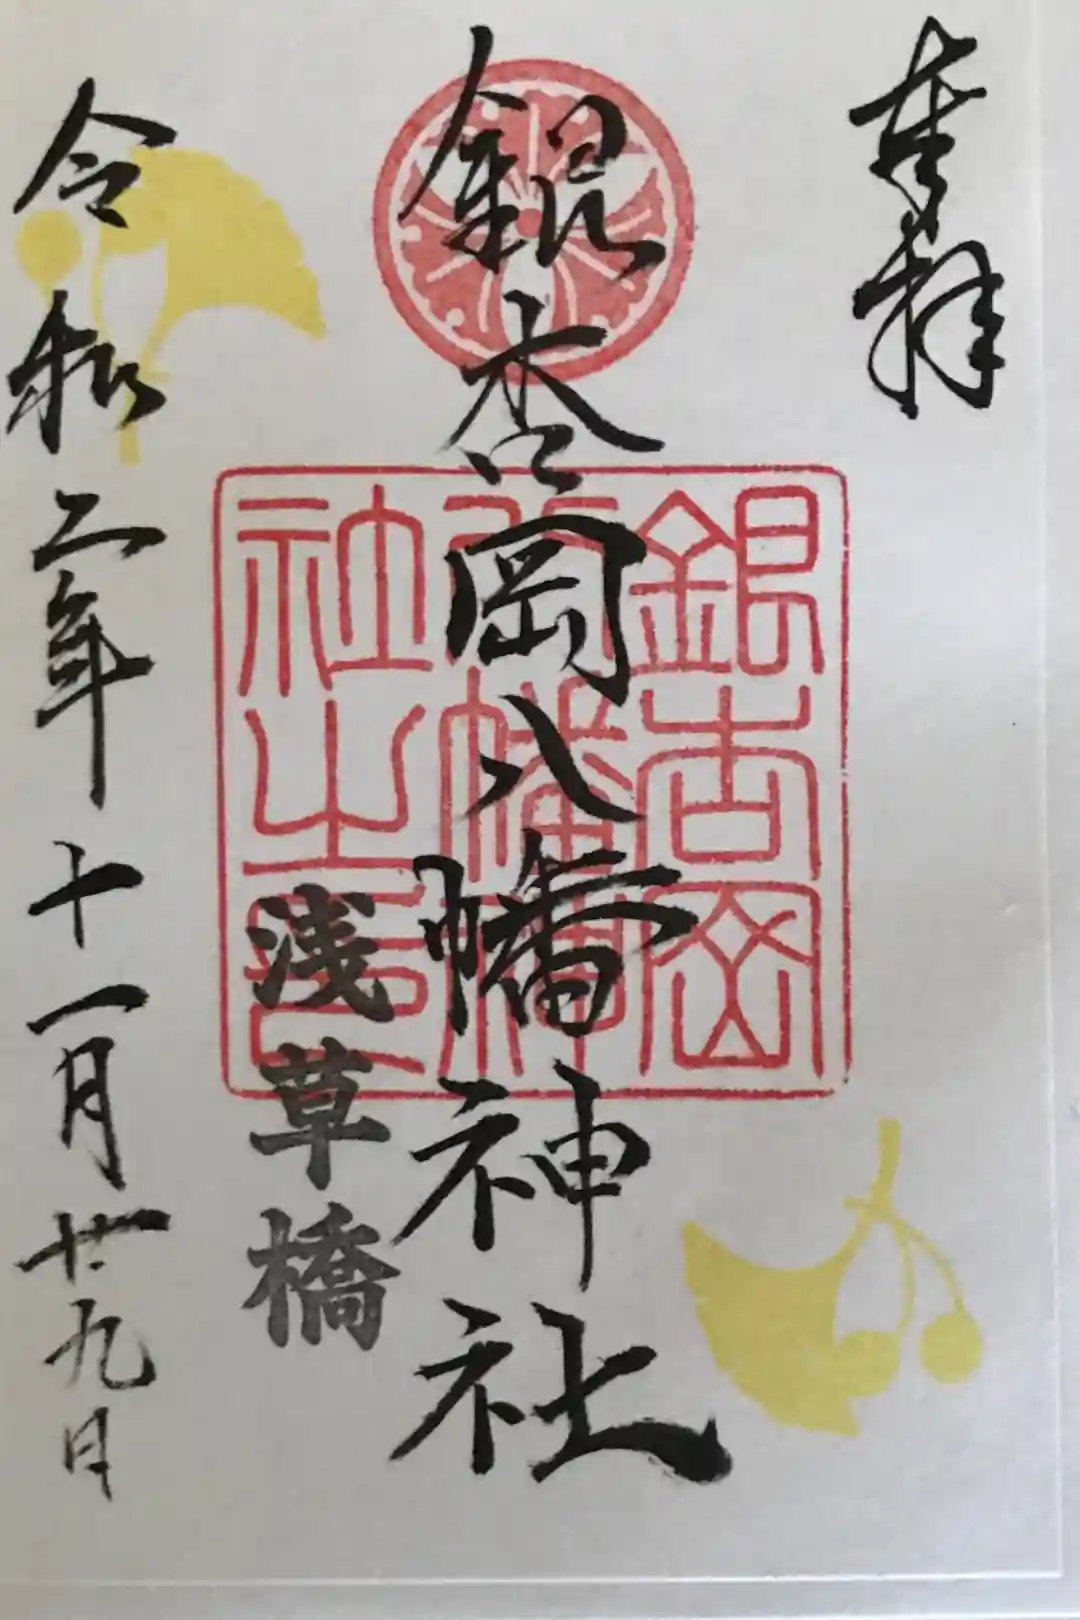 奉拝
銀杏岡八幡神社
銀杏岡
八幡神
社之印
浅草橋
令和二年十一月廿九日